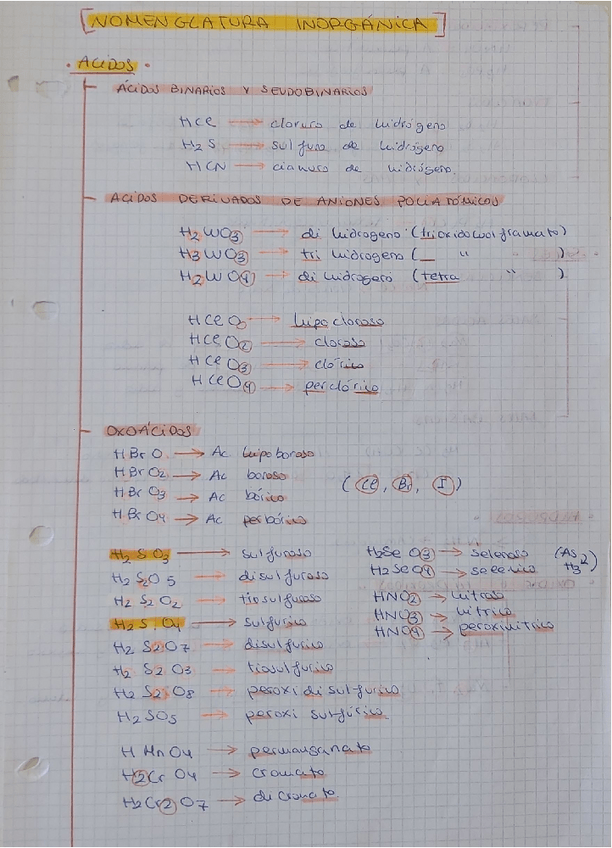 [NOMENGLATURA INORGÁNICA]
· ACIDOS ·
- ÁCIDOS BINARIOS Y SEUDOBINARIOS
HCl → cloruro de hidrógeno
H2S → sulfuro de hidrógeno
HCN → cianuro de hidrógeno.
- ACIDOS DERIVADOS DE ANIONES POLIATÓMICOS
H2WO3 → di hidrogeno (trioxidowolframato)
H3WO3 → tri hidrogeno (_ " )
H2WO4 → di hidrogeno (tetra " )
HClO → hipocloroso
HClO2 → cloroso
HClO3 → clórico
HClO4 → perclórico
- OXOÁCIDOS
HBrO → Ac hipoboroso
HBrO2 → Ac boroso
HBrO3 → Ac bórico
HBrO4 → Ac perbórico
(Cl, Br, I)
H2SO3 → sulfuroso
H2S2O5 → disulfuroso
H2S2O2 → tiosulfuroso
H2SO4 → sulfúrico
H2S2O7 → disulfúrico
H2S2O3 → tiosulfúrico
H2S2O8 → peroxidisulfúrico
H2SO5 → peroxi sulfúrico
H2SeO3 → selenoso (As
H2SeO4 → selenico H3 2)
HNO2 → nitroso
HNO3 → nitrico
HNO4 → peroxinitrico
HMnO4 → permanganato
H2CrO4 → cromato
H2Cr2O7 → dicromato